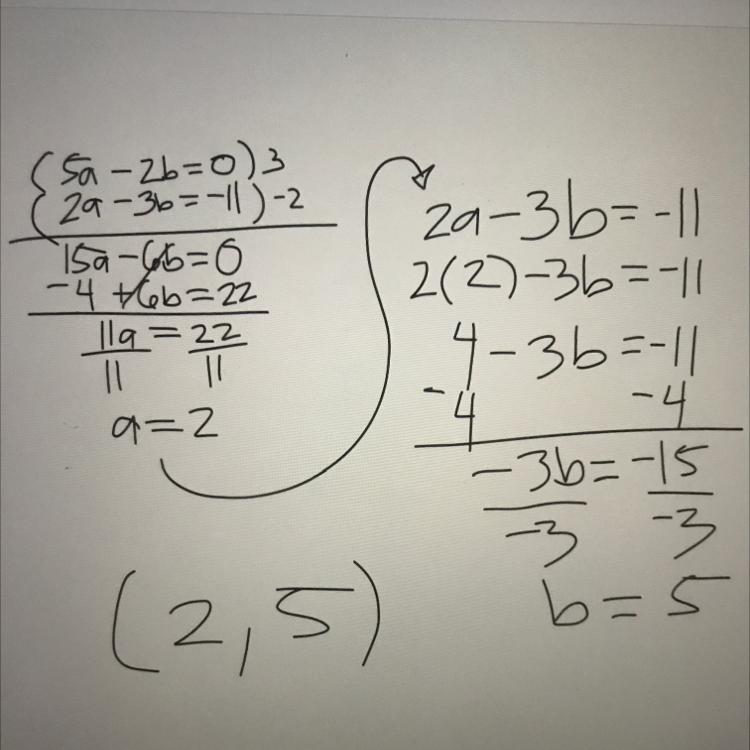 {5a - 2b = 0) 3
{2a - 3b = -11) -2
15a - 6b = 0
-4 + 6b = 22
11a = 22
11 11
a = 2
2a - 3b = -11
2(2) - 3b = -11
4 - 3b = -11
-4 -4
-3b = -15
-3 -3
b = 5
(2, 5)